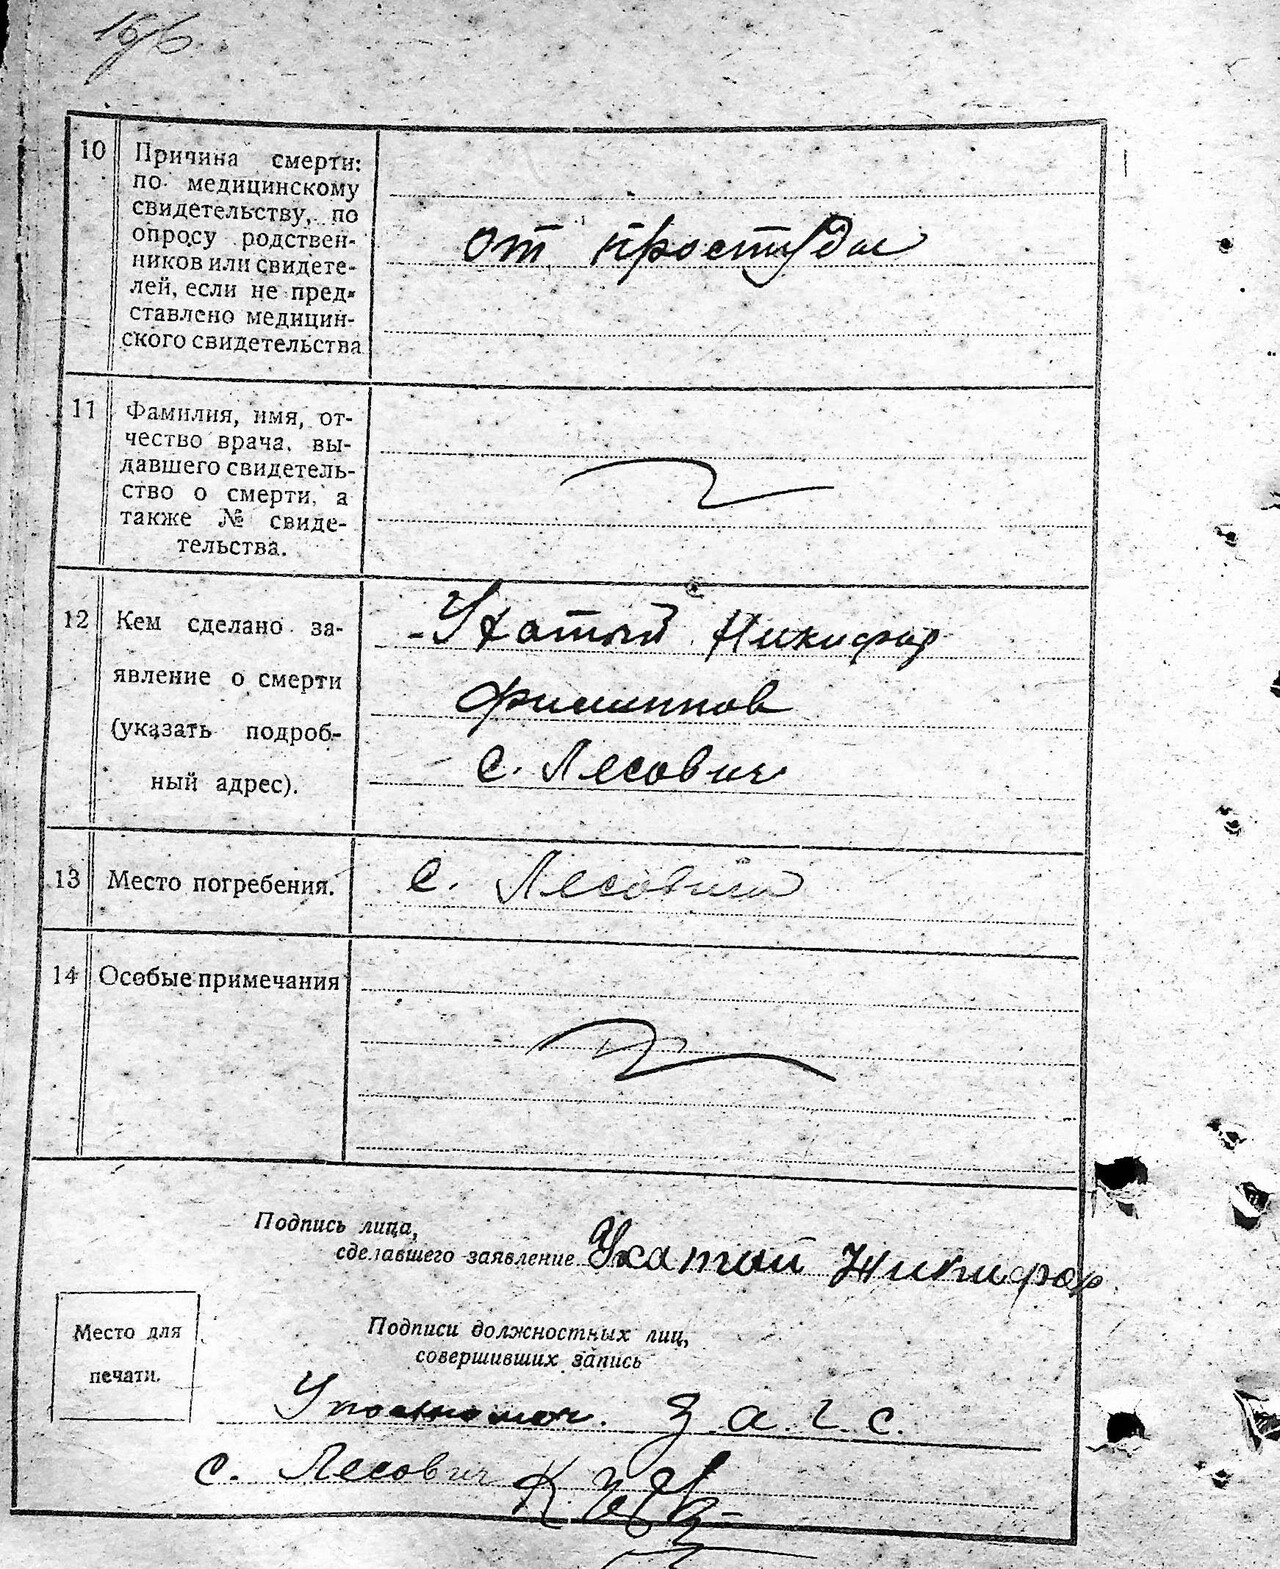 196
10 Причина смерти:
по медицинскому
свидетельству, по
опросу родствен-
ников или свидете-
лей, если не пред-
ставлено медицин-
ского свидетельства
от простуды
11 Фамилия, имя, от-
чество врача, вы-
давшего свидетель-
ство о смерти, а
также № свиде-
тельства.
12 Кем сделано за-
явление о смерти
(указать подроб-
ный адрес).
Ухатый Никифор
Филиппов
с. Лесович
13 Место погребения.
с. Лесовичи
14 Особые примечания
Подпись лица,
сделавшего заявление Ухатый Никифор
Место для
печати.
Подписи должностных лиц,
совершивших запись
Уполномоч. З а г с.
с. Лесович